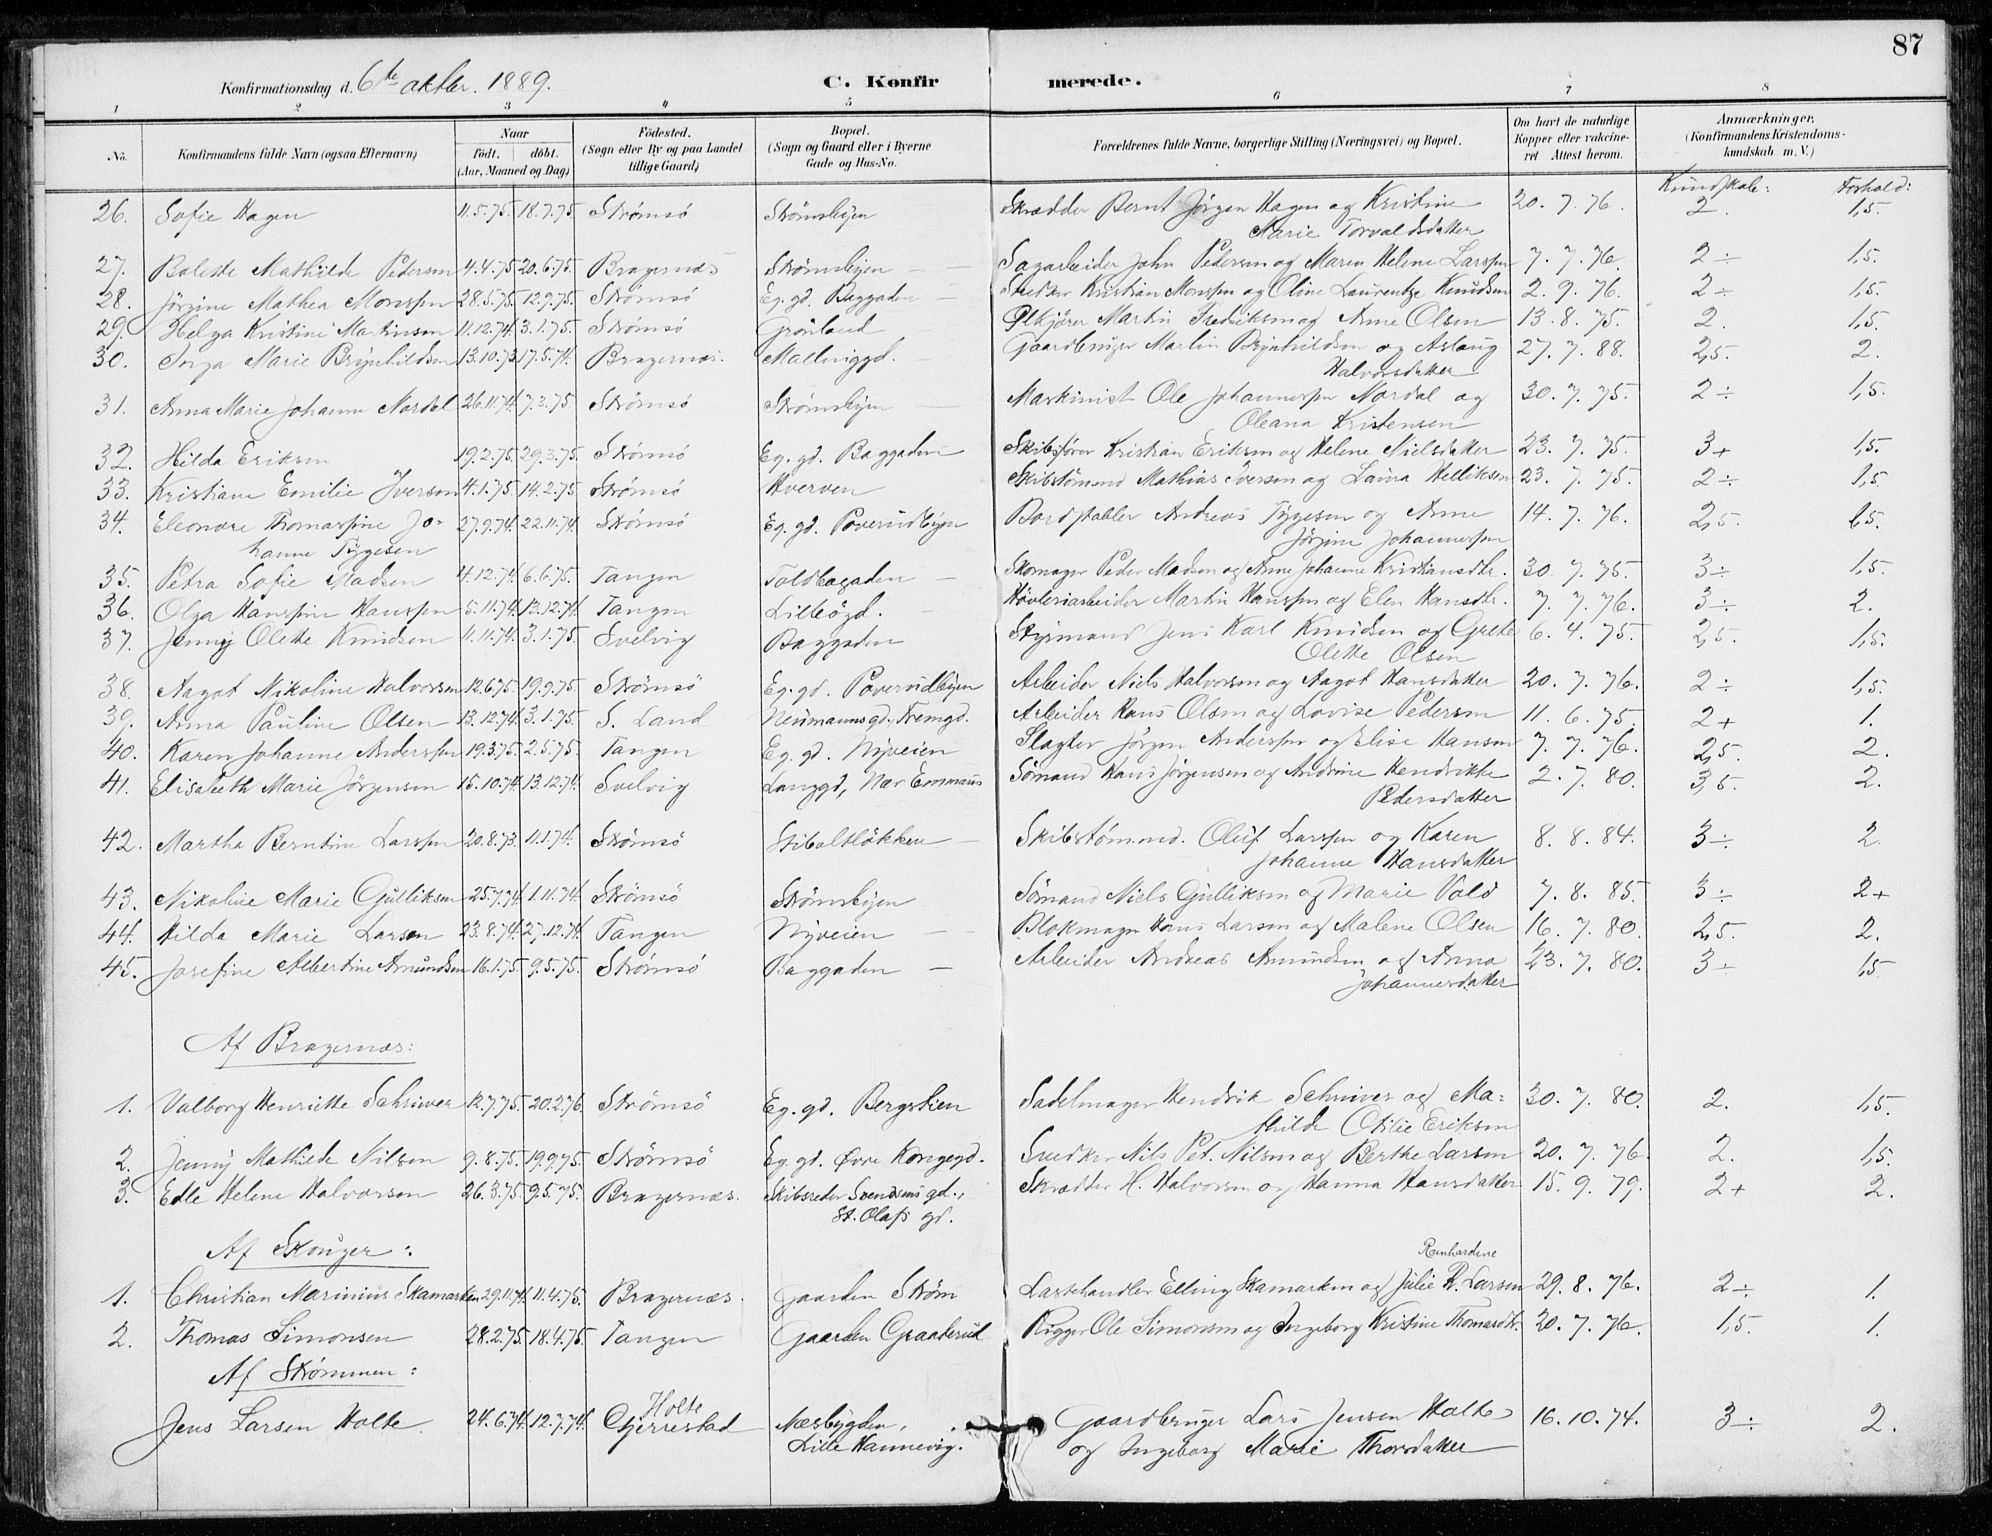 87
Konfirmationsdag d. 6te oktbr. 1889. C. Konfirmerede.
1 2 3 4 5 6 7 8
No. Konfirmandens fulde Navn (ogsaa Efternavn) Naar født, døbt. (Aar, Maaned og Dag) Fødested. (Sogn eller By og paa Landet tillige Gaard) Bopæl. (Sogn og Gaard eller i Byerne Gade og Hus-No. Forældrenes fulde Navne, borgerlige Stilling (Næringsvei) og Bopæl. Om havt de naturlige Kopper eller vakcineret Attest herom. Anmærkninger, (Konfirmandens Kristendomskundskab m. V.)
Kundskab: Forhold:
26. Sofie Hagen 11.5.75. 18.7.75. Strømsö Strømsbyen Skrædder Bernt Jörgen Hagen og Kristine 20. 7. 76. 2. 1,5.
Marie Torvaldsdatter
27. Bolette Mathilde Pedersen 4.4.75. 20.6.75. Bragernæs Strömsbyen Sagarbeider John Pedersen og Maren Helene Larssen 7. 7. 76. 2 ÷ 1,5.
28. Jörgine Mathea Monssen 28.5.75. 12.9.75. Strömsö Eg. gd. Baggaden Snedker Kristian Monssen og Oline Laurentze Knudsen 2. 9. 76. 2 ÷ 1,5.
29. Helga Kristine Martinsen 11.12.74. 3.1.75. Strömsö Grönland Ölkjörer Martin Fredriksen og Anne Olsen 13. 8. 75. 2. 1,5.
30. Inga Marie Brynhildsen 13.10.73. 17.5.74. Bragernæs. Mallinggd. Gaardbruger Martin Brynhildsen og Aslaug 27. 7. 88. 2,5. 2.
Halvorsdatter
31. Anna Marie Johanne Nordal 26.11.74. 7.3.75 Strömsö Strömsbyen Maskinist Ole Johannessen Nordal og 30. 7. 75. 2 ÷ 1,5.
Oleana Kristensen
32. Hilda Eriksen 19.2.75. 29.3.75. Strømsö Eg. gd. Baggaden Skibsfører Kristian Eriksen og Helene Nielsdatter 23. 7. 75. 3+ 1,5.
33. Kristiane Emilie Iversen 4.1.75. 14.2.75. Strømsö Hverven Skibstømmd Mathias Iversen og Laura Helliksen 23. 7. 75. 2 ÷ 1,5.
34. Eleonore Thomassine Jo- 27.9.74. 22.11.74. Strømsö Eg. gd. Poverudbyen Bordstabler Andreas Tygesen og Anne 14. 7. 76. 2,5. 1,5.
hanne Tygesen Jörgine Johannessen
35. Petra Sofie Madsen 4.12.74. 6.6.75. Tangen Toldbogaden Skomager Peder Madsen og Anne Johanne Kristiansdtr. 30. 7. 75. 3 ÷ 1,5.
36. Olga Hanssine Hanssen 5.11.74. 13.12.74. Tangen Lillebögd. Høvleriarbeider Martin Hanssen og Elen Hansdtr. 7. 7. 76. 3 ÷ 2.
37. Jenny Olette Knudsen 11.11.74. 3.1.75. Svelvig Baggaden Styrmand Jens Karl Knudsen og Grethe 6. 4. 75. 2,5. 1,5.
Olette Olsen
38. Aagot Nikoline Halvorsen 12.6.75. 19.9.75. Strömsö Eg. gd. Poverudbyen Arbeider Niels Halvorsen og Aagot Hansdatter 20. 7. 76. 2 ÷ 1,5.
39. Anna Pauline Olsen 13.12.74. 3.1.75. S. Land Neumannsgd. Tremgd. Arbeider Hans Olsen og Lovise Pedersen 11. 6. 75. 2+ 1.
40. Karen Johanne Anderssen 19.3.75. 2.5.75. Tangen Eg. gd. Nyveien Slagter Jörgen Anderssen og Elise Hansen 7. 7. 76. 2,5. 2.
41. Elisabeth Marie Jörgensen 15.10.74. 13.12.74. Svelvig Langgd, Nær Emmaus Sömand Hans Jörgensen og Andrine Hendrikke 2. 7. 80. 3,5. 2.
Pedersdatter
42. Martha Berntine Larssen 20.8.73. 11.1.74. Strömsö Stiboltlökken Skibstömmd. Oluf Larssen og Karen 8. 8. 84. 3 ÷ 2.
Johanne Hansdatter
43. Nikoline Marie Gulliksen 25.7.74. 1.11.74. Strømsö Strømsbyen Sömand Niels Gulliksen og Marie Vold 7. 8. 85. 3 ÷ 2+
44. Hilda Marie Larsen 23.8.74. 27.12.74. Tangen Nyveien Blokmager Hans Larsen og Malene Olsen 16. 7. 80. 2,5. 2.
45. Josefine Albertine Amundsen 16.1.75. 9.5.75. Strømsö Baggaden Arbeider Andreas Amundsen og Anna 23. 7. 80. 3 ÷ 1,5
Johannesdatter
Af Bragernæs:
1. Valborg Henriette Schriwer 12.7.75. 20.2.76. Strömsö Eg. gd. Bergstien Sadelmager Hendrik Schriver og Ma= 30. 7. 80. 2. 1,5.
thilde Otilie Eriksen
2. Jenny Mathilde Nilsen 9.8.75. 19.9.75. Strømsö Eg. gd. Øvre Kongegd. Snedker Nils Pet. Nilsen og Berthe Larsen 20. 7. 76. 2. 1,5.
3. Edle Helene Halvorsen 26.3.75. 9.5.75. Bragernæs. Skibsreder Svendsens gd., Skrædder H. Halvorsen og Hanna Hansdatter 15. 9. 79. 2+ 2.
St. Olafs gd.
Af Skouger:
Reinhardine
1. Christian Marinius Skamarken 29.11.74. 11.4.75. Bragernæs. Gaarden Ström Lasthandler Elling Skamarken og Julie R. Larsen 29. 8. 76. 2 ÷ 1.
2. Thomas Simonsen 28.2.75. 18.4.75. Tangen Gaarden Graaterud Rigger Ole Simonsen og Ingeborg Kristine Thomasdtr. 20. 7. 76. 1,5. 1.
Af Strömmen:
Jens Larsen Holte. 24.6.74. 12.7.74. Holte Gjerrestad Næsbygden, Gaardbruger Lars Jensen Holte 16. 10. 74. 3 ÷ 2.
Lille Hannevig. og Ingeborg Marie Thorsdatter